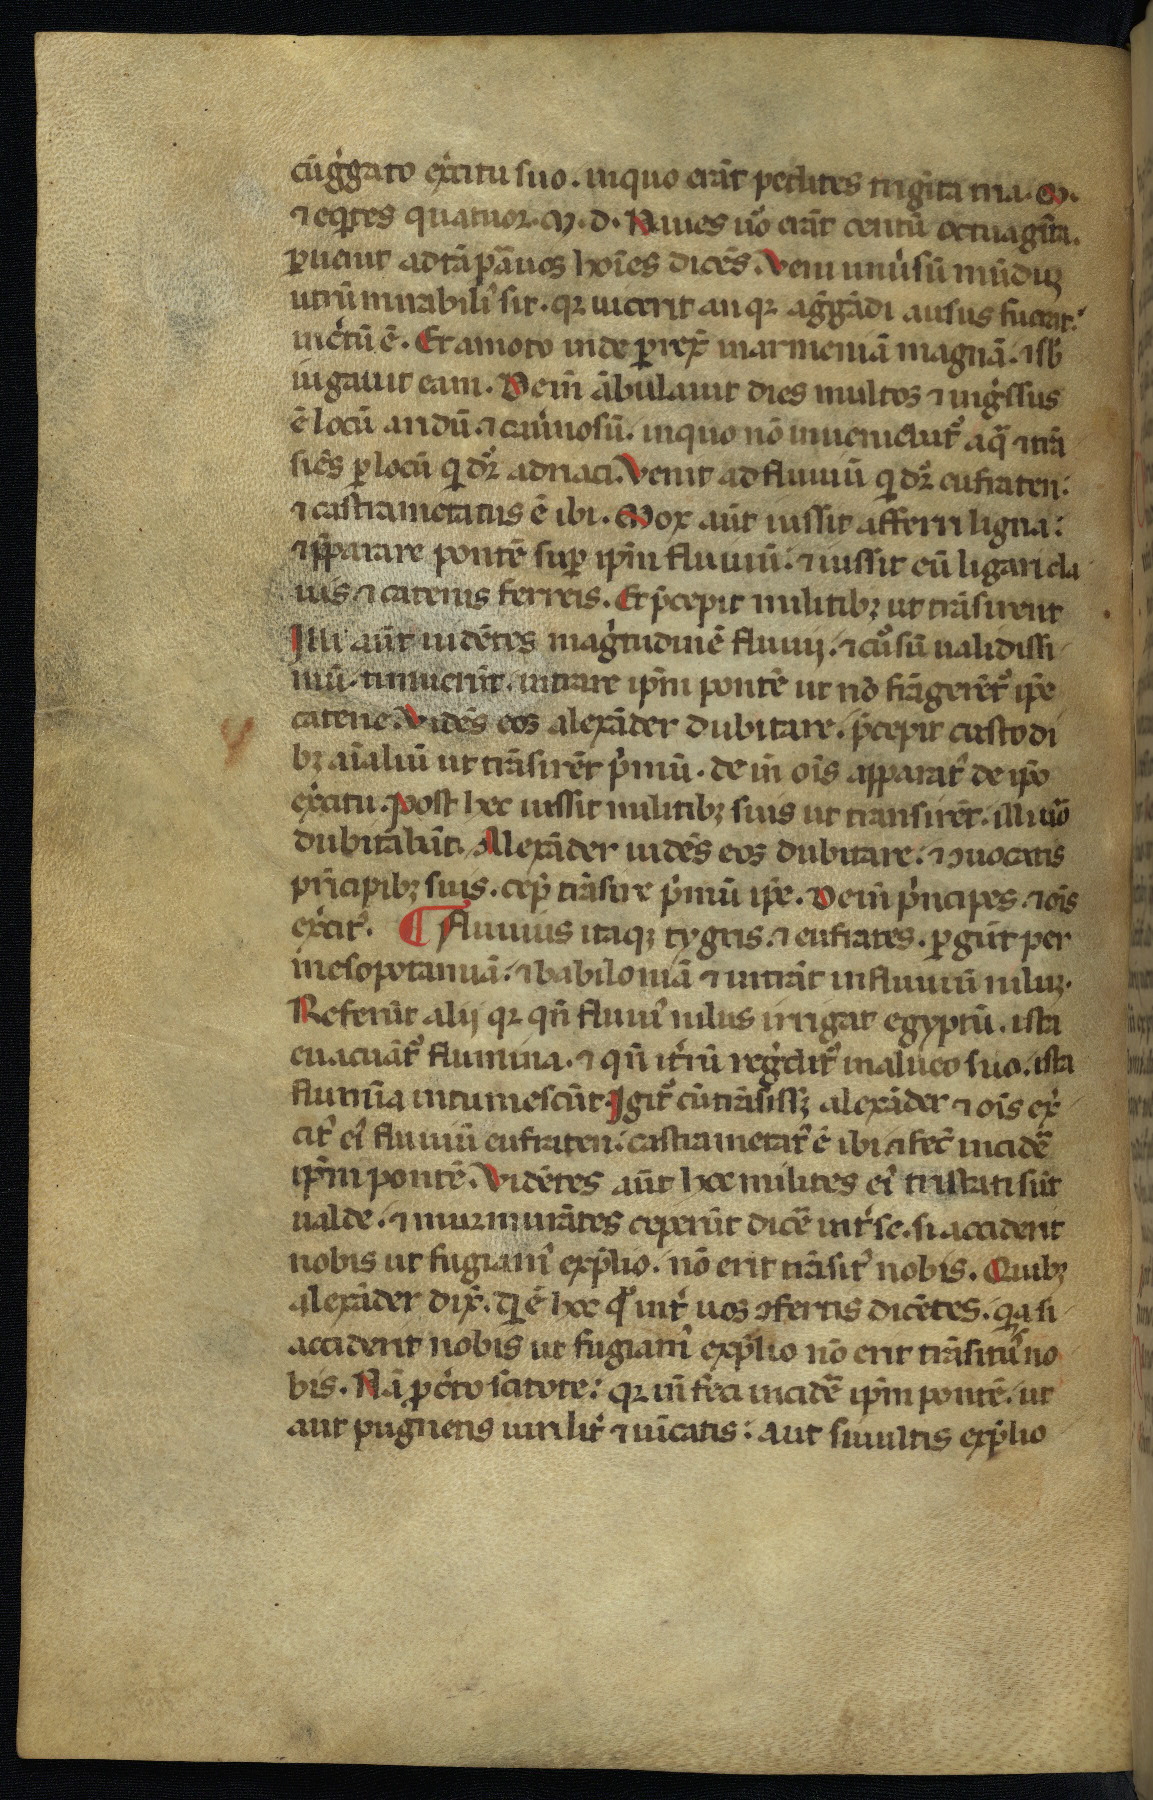 cū g̾gato exc̾itu suo. in quo erāt pedites trigīta tria. M.
⁊ eq̄tes quatuor. M. d. Naues ūo erāt centū octuagīta.
ꝑuenit ad tā pāuos hoīes dicēs. Veni uniūsū mūduꝫ
utrū mirabiliꝰ sit. qꝛ uicerit an qꝛ agg̃ādi ausus fuerat.
inc̾tū ē. Et amoto inde ꝑrex̄ in armeniā magnā. ⁊ sb̄
iugauit eam. Dein̄ ābulauit dies multos ⁊ ing̾ssus
ē locū aridū ⁊ cau̾nosū. in quo nō inueniebat̾ aq̄ ⁊ trā
siēs ꝑ locū qͥ dr̄ adriaci. Venit ad fluuiū qͥ dr̄ eufraten.
⁊ castrametatus ē ibi. Mox aūt iussit afferri ligna.
⁊ p̄parare pontē suꝑ ip̄m fluuiū. ⁊ iussit eū ligari cla
uis ⁊ catenis ferreis. Et p̄cepit militibꝫ ut trāsirent
Illi aūt uidētes mag̾tudinē fluuij. ⁊ cu̾sū ualidissi
mū. timuerūt. intrare ip̄m pontē ut nō frāgerēt̾ ip̄e
catene. Vidēs eos alexāder dubitare. p̄cepit custodi
bꝫ aīaliū ut trāsirēt p̾mū. dein oīs apparatꝰ de ip̄o
exc̾itu. Post hec iussit militibꝫ suis ut transirēt. illi uō
dubitabāt. Alexāder uidēs eos dubitare. ⁊ ꝯuocatis
prīcipibꝫ suis. cep̄ trāsire p̾mū ip̄e. Dein̄ p̾ncipes. ⁊ oīs
exc̾itꝰ. ¶ Fluuius itaqꝫ tygris. ⁊ eufrates. ꝑgūt per
mesopotamiā. ⁊ babiloniā ⁊ intrāt in fluuiū niluꝫ.
Referūt alij qꝛ qn̄ fluuiꝰ nilus irrigat egyptū. ista
euacuāt̾ flumina. ⁊ qn̄ it̾ū reg̾dit̾ in alueo suo. ista
flumīa intumescūt. Igit̾ cū trāsissꝫ alexāder ⁊ oīs ex̾
citꝰ eiꝰ fluuiū eufraten. castrametatꝰ ē ibi ⁊ fec̄ incide̾
ip̄m pontē. Vidētes aūt hoc milites eiꝰ tristati sūt
ualde. ⁊ murmurātes ceperūt dice̾ int̾ se. si acciderit
nobis ut fugiamꝰ ex p̄lio. nō erit trāsitꝰ nobis. Quibꝫ
alexāder dix̄. qͥ ē hec qͥ int̾ uos ꝯfertis dicētes. qͥa si
acciderit nobis ut fugiamꝰ ex p̄lio nō erit trāsituꝰ no
bis. Nā ꝓ c̾to scitote. qꝛ iī feci incide̾ ip̄m pontē. ut
aut pugnetis uirilit̾ ⁊ uīcatis. aut si uultis ex p̄lio